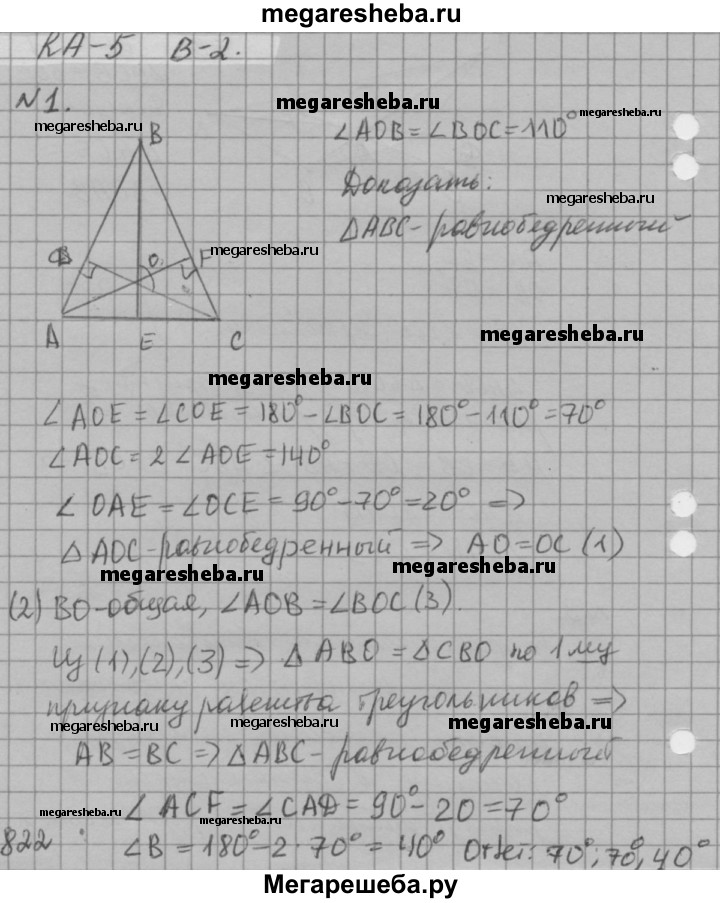 megaresheba.ru
КА-5 В-2.
№1.
megaresheba.ru
megaresheba.ru
megaresheba.ru
B
∠AOB = ∠BOC = 110°
Доказать:
megaresheba.ru
ΔABC - равнобедренный
O
F
megaresheba.ru
A
E
C
megaresheba.ru
megaresheba.ru
∠AOE = ∠COE = 180° - ∠BOC = 180° - 110° = 70°
∠AOC = 2 ∠AOE = 140°
∠OAE = ∠OCE = 90° - 70° = 20° =>
ΔAOC - равнобедренный => AO = OC (1)
megaresheba.ru
megaresheba.ru
(2) BO - общая, ∠AOB = ∠BOC (3).
Из (1), (2), (3) => ΔABO = ΔCBO по 1му
признаку равенства треугольников =>
megaresheba.ru
megaresheba.ru
megaresheba.ru
AB = BC => ΔABC - равнобедренный
∠ACF = ∠CAD = 90° - 20 = 70°
megaresheba.ru
megaresheba.ru
822
∠B = 180° - 2·70° = 40° Ответ: 70°; 70°, 40°
Мегарешеба.ру